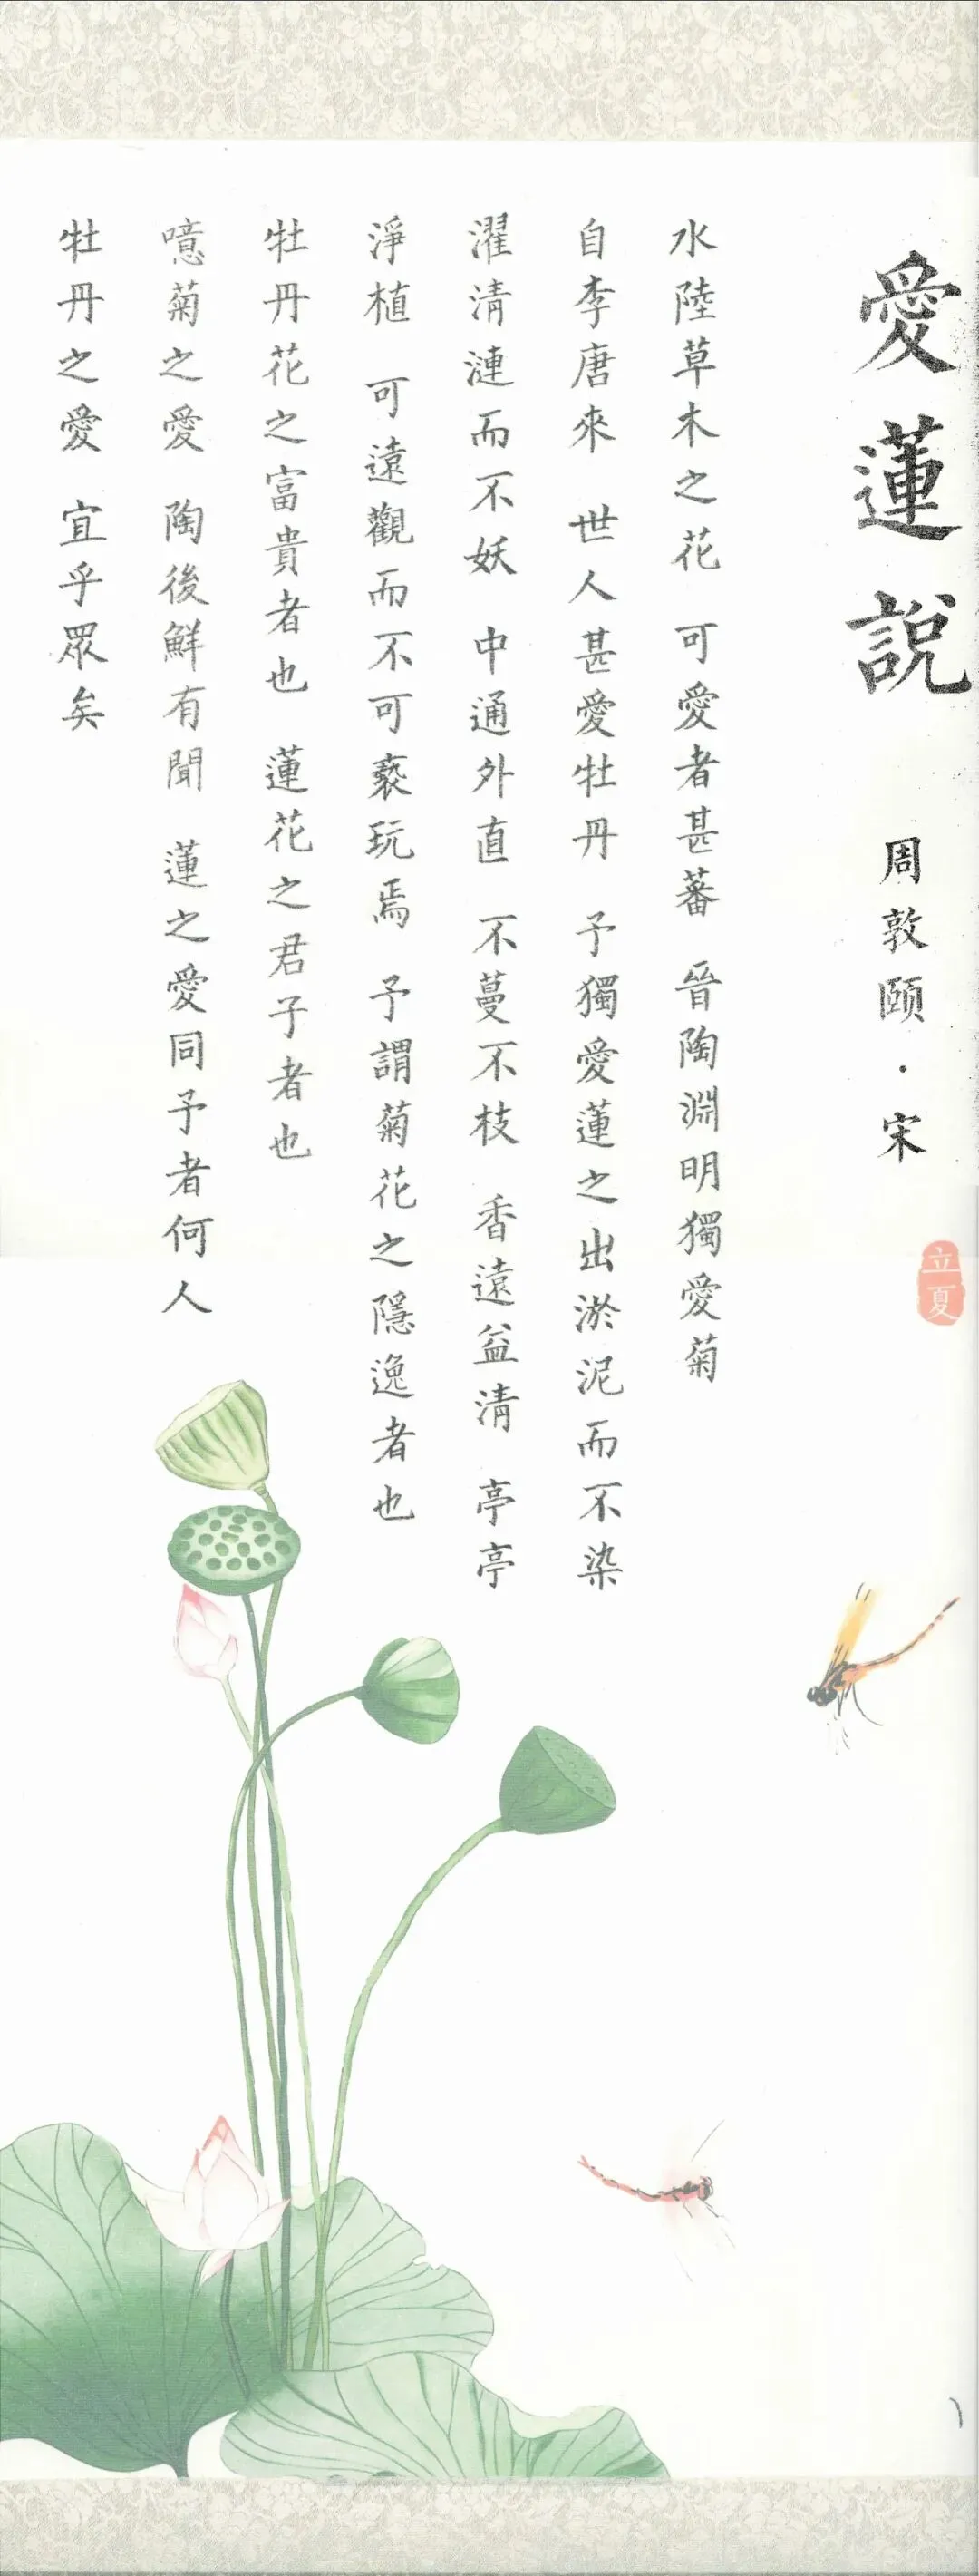 愛蓮說
周敦頤·宋
立夏
水陸草木之花 可愛者甚蕃 晉陶淵明獨愛菊
自李唐來 世人甚愛牡丹 予獨愛蓮之出淤泥而不染
濯清漣而不妖 中通外直 不蔓不枝 香遠益清 亭亭
淨植 可遠觀而不可褻玩焉 予謂菊花之隱逸者也
牡丹花之富貴者也 蓮花之君子者也
噫菊之愛 陶後鮮有聞 蓮之愛同予者何人
牡丹之愛 宜乎眾矣